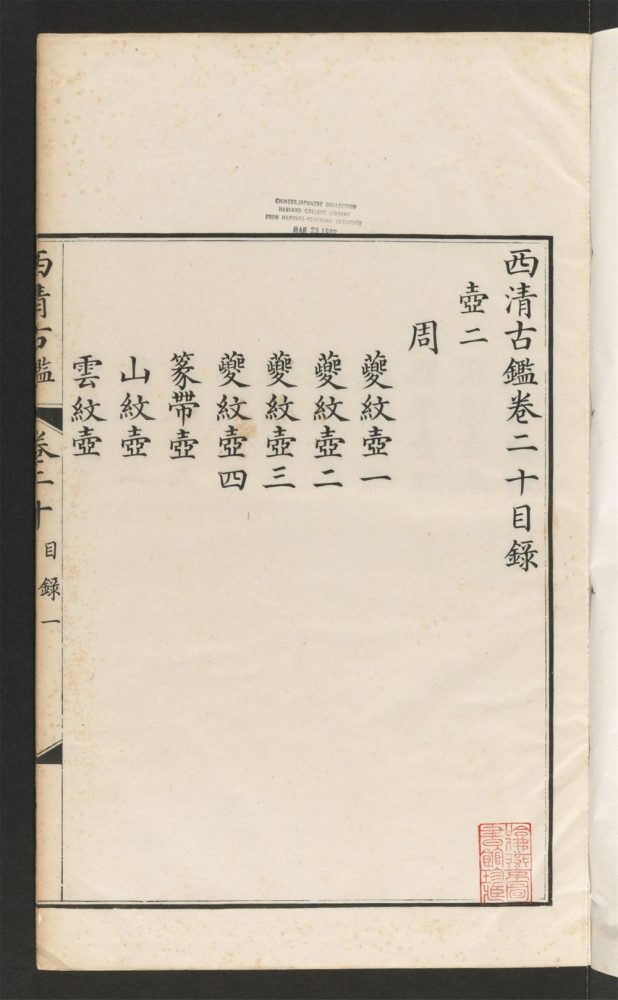 CHINESE-JAPANESE COLLECTION
HARVARD COLLEGE LIBRARY
FROM HARVARD-YENCHING INSTITUTE
MAR 23 1932
西清古鑑卷二十目錄
壺二
周
夔紋壺一
夔紋壺二
夔紋壺三
夔紋壺四
篆帶壺
山紋壺
雲紋壺
西清古鑑
卷二十
目錄一
哈佛燕京圖書館珍藏